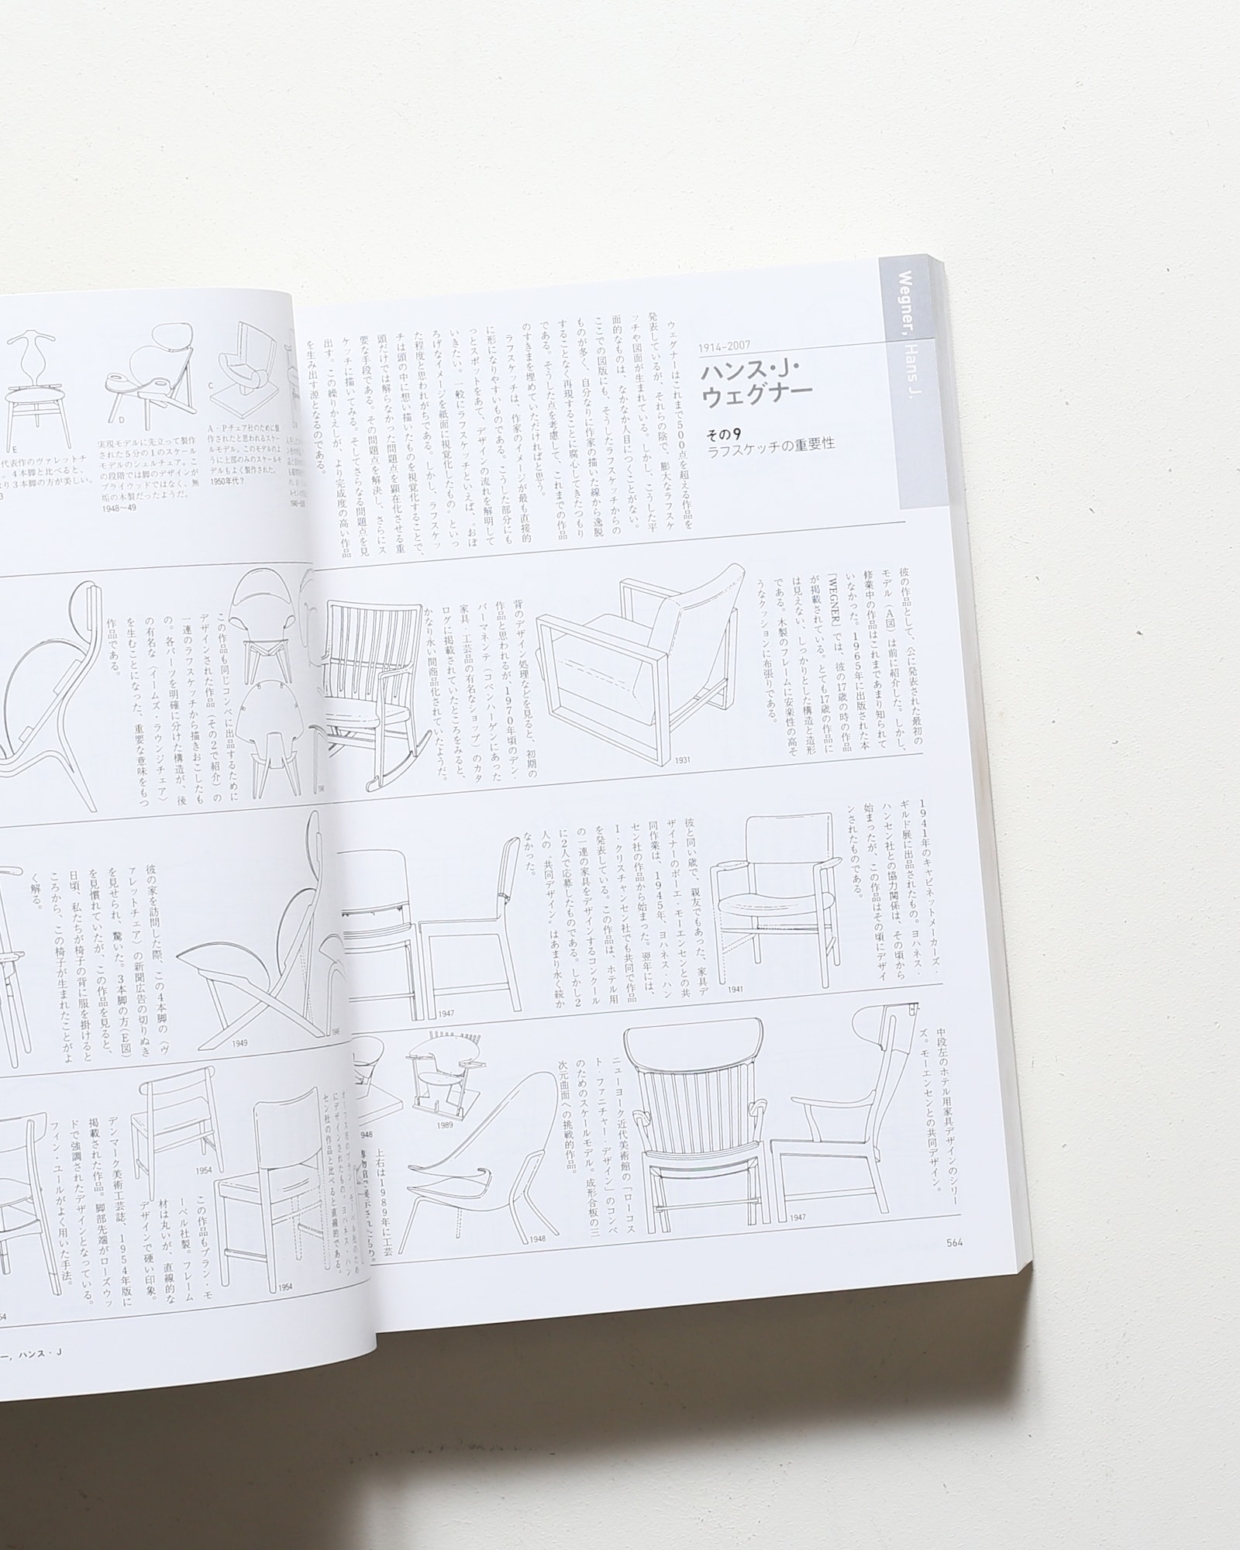 Wegner, Hans J.
1914–2007
ハンス・J・
ウェグナー
その9
ラフスケッチの重要性
ウェグナーはこれまで500点を超える作品を
発表しているが、それらの陰で、膨大なラフスケ
ッチや図面が生まれている。しかし、こうした平
面的なものは、なかなか人目につくことがない。
ここでの図版にも、そうしたラフスケッチからの
ものが多く、自分なりに作家の描いた線から逸脱
することなく再現することに腐心してきたつもり
である。そうした点を考慮して、これまでの作品
のすきまを埋めていただければと思う。
ラフスケッチは、作家のイメージが最も直接的
に形になりやすいものである。こうした部分にも
っとスポットをあて、デザインの流れを解明して
いきたい。一般にラフスケッチといえば、“おぼ
ろげなイメージを紙面に視覚化したもの”といっ
た程度と思われがちである。しかし、ラフスケッ
チは頭の中に想い描いたものを視覚化することで、
頭だけでは解らなかった問題点を顕在化させる重
要な手段である。その問題点を解決し、さらにス
ケッチに描いてみる。そしてさらなる問題点を見
出す。この繰りかえしが、より完成度の高い作品
を生み出す源となるのである。
彼の作品として、公に発表された最初の
モデル（A図）は前に紹介した。しかし、
修業中の作品はこれまであまり知られて
いなかった。1965年に出版された本
『WEGNER』では、彼の17歳の時の作品
が掲載されている。とても17歳の作品に
は見えない、しっかりとした構造と造形
である。木製のフレームに安楽性の高そ
うなクッションに布張りである。
1931
背のデザイン処理などを見ると、初期の
作品と思われるが、1970年頃のデン・
パーマネンテ（コペンハーゲンにあった
家具・工芸品の有名なショップ）のカタ
ログに掲載されていたところをみると、
かなり永い間商品化されていたようだ。
1941年のキャビネットメーカーズ・
ギルド展に出品されたもの。ヨハネス・
ハンセン社との協力関係は、その頃から
始まったが、この作品はその頃にデザイ
ンされたものである。
1941
彼と同い歳で、親友でもあった、家具デ
ザイナーのボーエ・モーエンセンとの共
同作業は、1945年、ヨハネス・ハン
セン社の作品から始まった。翌年には、
I・クリスチャンセン社でも共同で作品
を発表している。この作品は、ホテル用
の一連の家具をデザインするコンクール
に2人で応募したものである。しかし2
人の“共同デザイン”はあまり永く続か
なかった。
1947
中段左のホテル用家具デザインのシリー
ズ。モーエンセンとの共同デザイン。
1947
ニューヨーク近代美術館の「ローコス
ト・ファニチャー・デザイン」のコンペ
のためのスケールモデル。成形合板の三
次元曲面への挑戦的作品。
1948
1989
上右は1989年に工芸
564
E
D
C
実現モデルに先立って製作
された5分の1のスケール
モデルのシェルチェア。こ
の段階では脚のデザインが
プライウッドではなく、無
垢の木製だったようだ。
1948〜49
A・Pチェア社のために製
作されたと思われるスケー
ルモデル。このモデルのよ
うに上部のみのスケールモ
デルもよく製作された。
1950年代？
代表作のヴァレットチ
、4本脚と比べると、
り3本脚の方が美しい。
この作品も同じコンペに出品するために
デザインされた作品（その2で紹介）の
一連のラフスケッチから描きおこしたも
の。各パーツを明確に分けた構造が、後
の有名な〈イームズ・ラウンジチェア〉
を生むことになった、重要な意味をもつ
作品である。
1949
彼の家を訪問した際、この4本脚の〈ヴ
ァレットチェア〉の新聞広告の切りぬき
を見せられ、驚いた。3本脚の方（E図）
を見慣れていたが、この作品を見ると、
日頃、私たちが椅子の背に服を掛けると
ころから、この椅子が生まれたことがよ
く解る。
1954
この作品もプラン・モ
ーベル社製。フレーム
材は丸いが、直線的な
デザインで硬い印象。
1954
デンマーク美術工芸誌、1954年版に
掲載された作品。脚部先端がローズウッ
ドで強調されたデザインとなっている。
フィン・ユールがよく用いた手法。
ー, ハンス・J